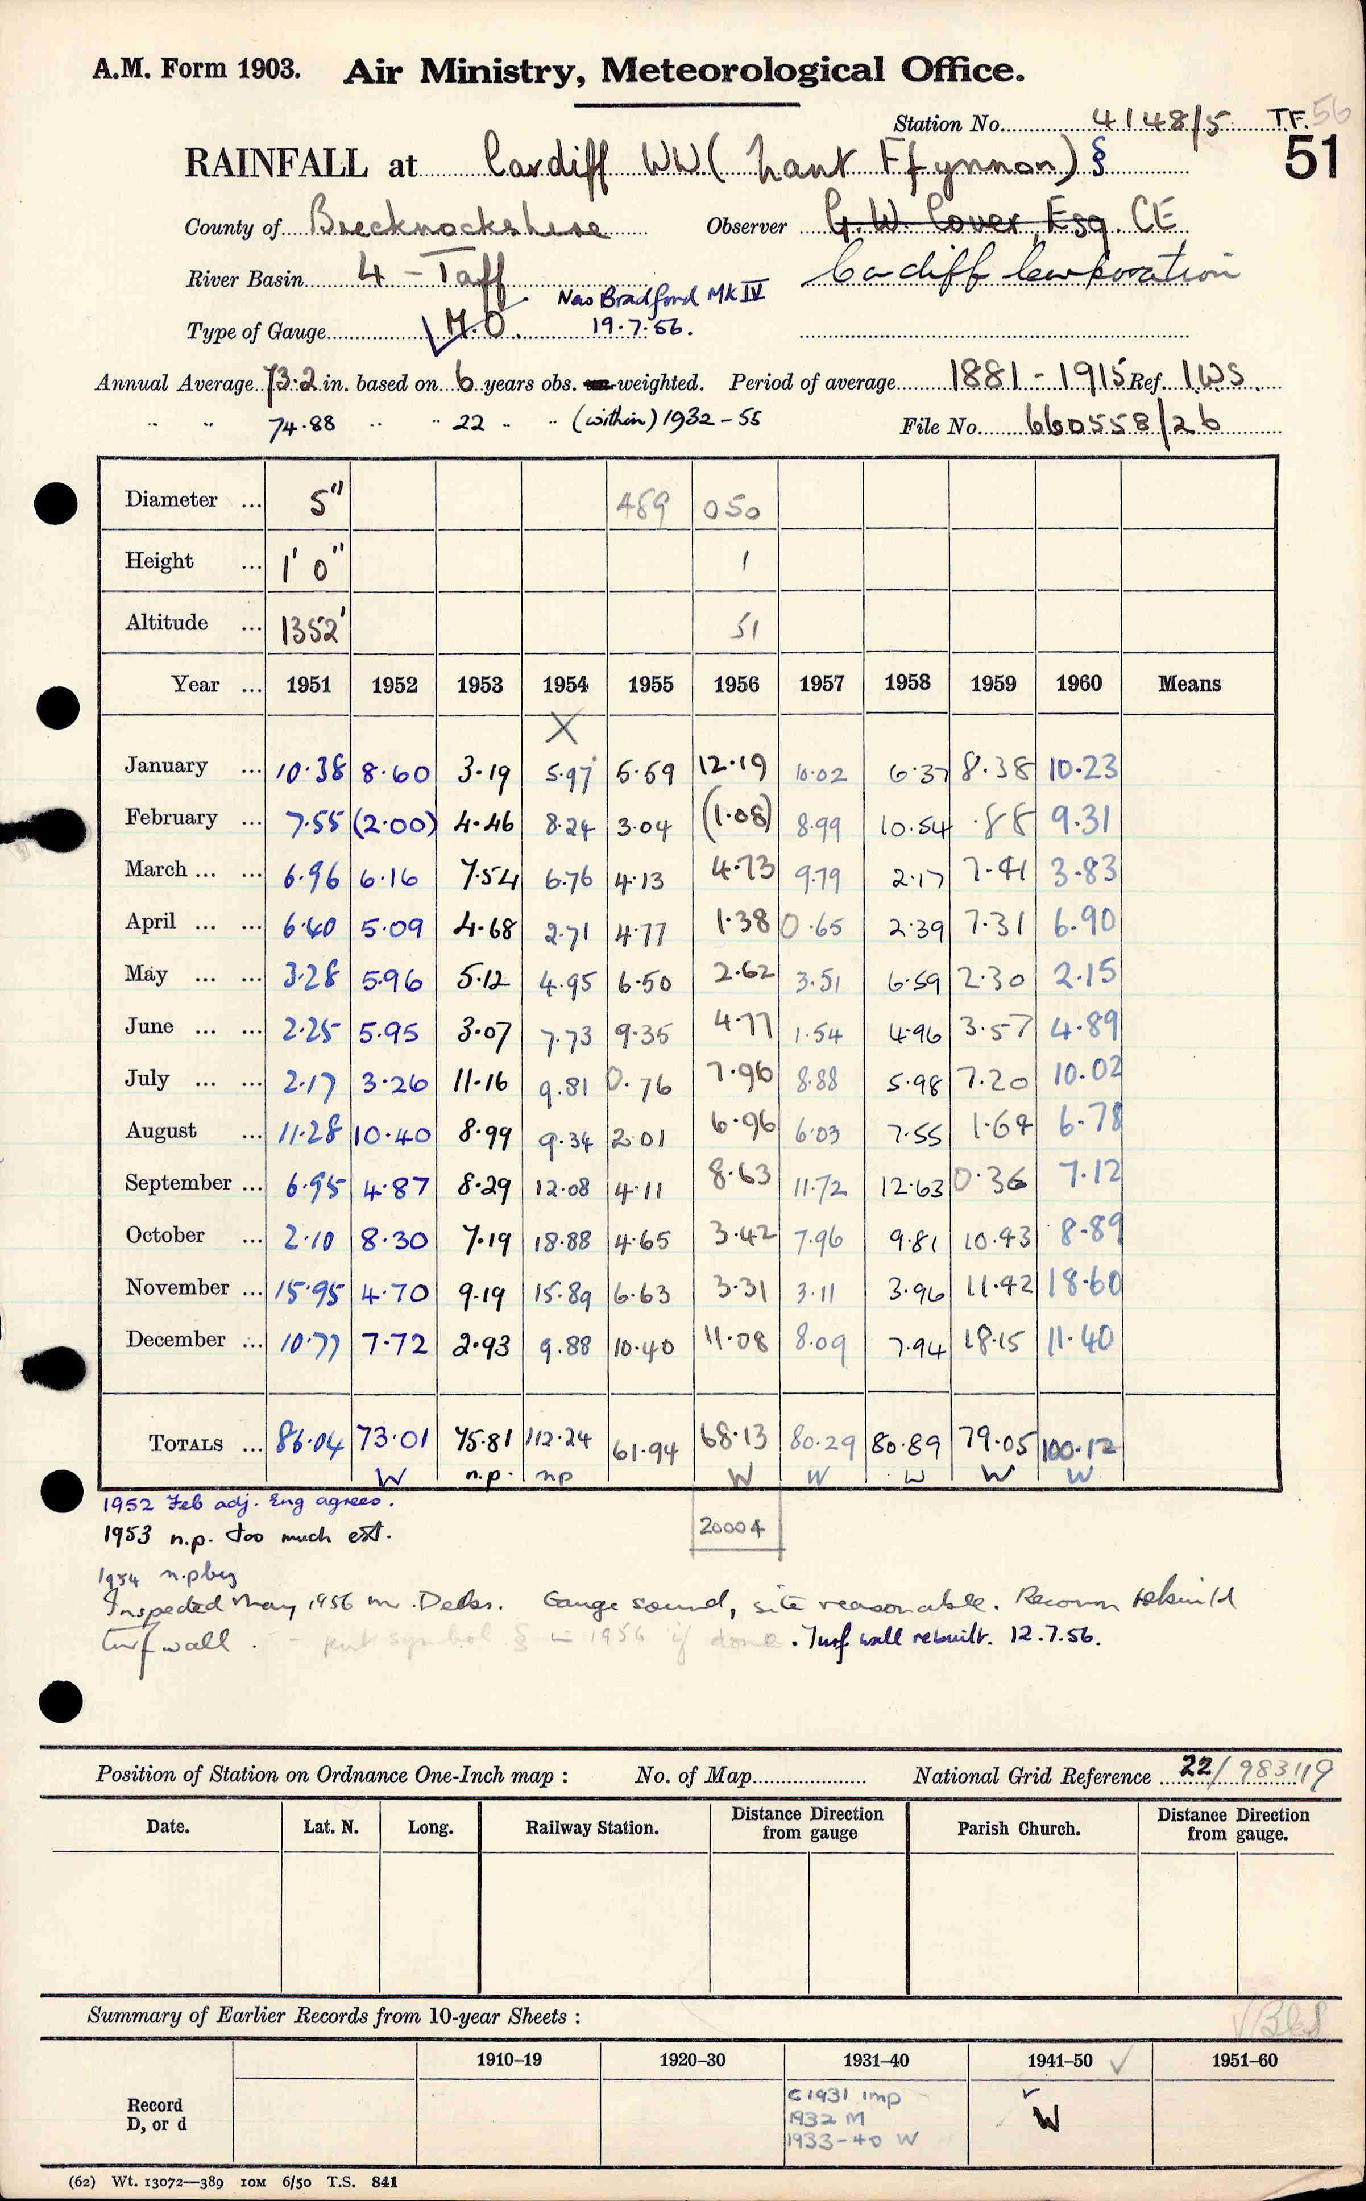 A.M. Form 1903. Air Ministry, Meteorological Office.
Station No. 4148/5 T.F. 56
51
RAINFALL at Cardiff WW (Nant Ffynnon) §
County of Brecknockshire Observer G. W. Cover, Esq. CE
Cardiff Corporation
River Basin 4 - Taff
New Bradford Mk IV
Type of Gauge M.O. 19.7.56.
Annual Average 73.2 in. based on 6 years obs. weighted. Period of average 1881 - 1915 Ref. I.W.S.
" " 74.88 " " 22 " " (within) 1932-55 File No. 660558/26
Diameter ... 5" 489 050
Height ... 1' 0" 1
Altitude ... 1352' 51
Year ... 1951 1952 1953 1954 1955 1956 1957 1958 1959 1960 Means
X
January ... 10.38 8.60 3.19 5.97 5.59 12.19 10.02 6.37 8.38 10.23
February ... 7.55 (2.00) 4.46 8.24 3.04 (1.08) 8.99 10.54 .88 9.31
March ... ... 6.96 6.16 7.54 6.76 4.13 4.73 9.79 2.17 7.41 3.83
April ... ... 6.40 5.09 4.68 2.71 4.77 1.38 0.65 2.39 7.31 6.90
May ... ... 3.28 5.96 5.12 4.95 6.50 2.62 3.51 6.59 2.30 2.15
June ... ... 2.25 5.95 3.07 7.73 9.35 4.77 1.54 4.96 3.57 4.89
July ... ... 2.17 3.26 11.16 9.81 0.76 7.96 8.88 5.98 7.20 10.02
August ... 11.28 10.40 8.99 9.34 2.01 6.96 6.03 7.55 1.64 6.78
September ... 6.95 4.87 8.29 12.08 4.11 8.63 11.72 12.63 0.36 7.12
October ... 2.10 8.30 7.19 18.88 4.65 3.42 7.96 9.81 10.43 8.89
November ... 15.95 4.70 9.19 15.89 6.63 3.31 3.11 3.96 11.42 18.60
December ... 10.77 7.72 2.93 9.88 10.40 11.08 8.09 7.94 18.15 11.40
TOTALS ... 86.04 73.01 75.81 112.24 61.94 68.13 80.29 80.89 79.05 100.12
W n.p. np W W W W W
1952 Feb adj. Eng agrees.
1953 n.p. too much est. 20004
1954 n.p
Inspected May 1956 Mr. Gauge sound, site reasonable. Recomm rebuild
turf wall. - put symbol § in 1956 if done. Turf wall rebuilt. 12.7.56.
Position of Station on Ordnance One-Inch map : No. of Map National Grid Reference 22/983119
Date. Lat. N. Long. Railway Station. Distance Direction from gauge Parish Church. Distance Direction from gauge.
Summary of Earlier Records from 10-year Sheets :
1910–19 1920–30 1931–40 1941–50 ✓ 1951–60
Record D, or d
C 1931 imp
1932 M
1933-40 W
W
(62) Wt. 13072—389 10M 6/50 T.S. 841